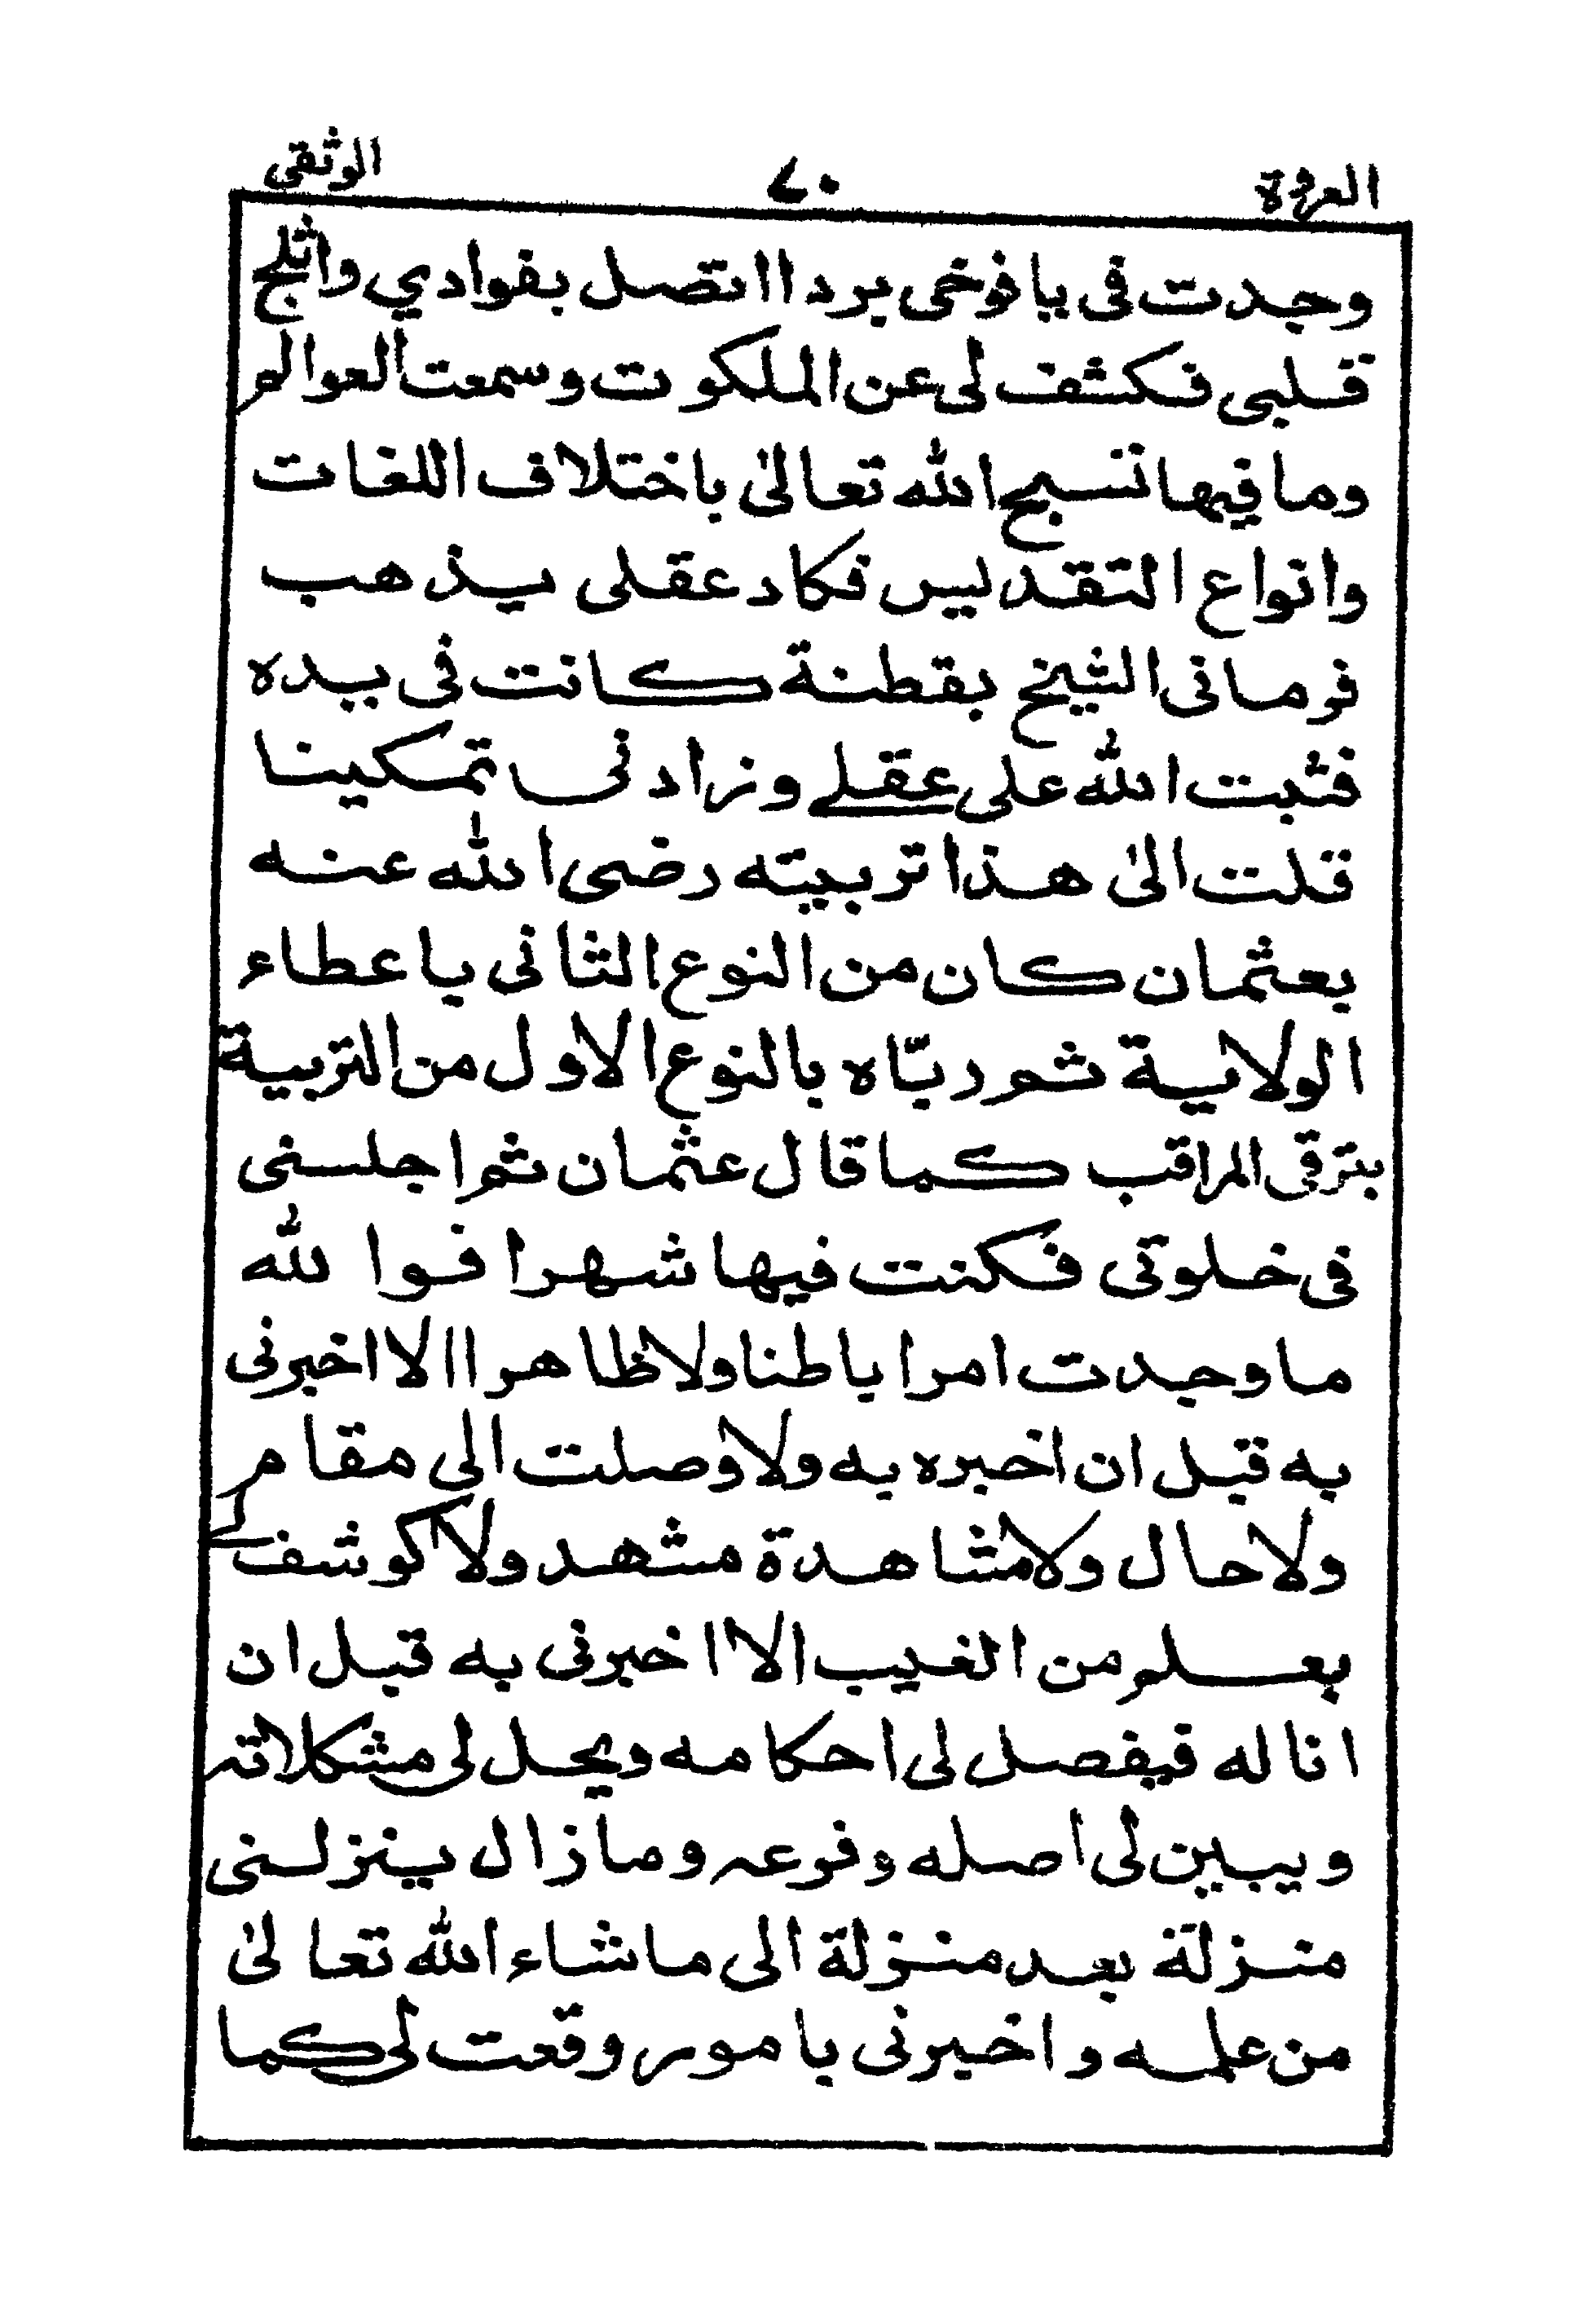 العروة ٧٠ الوثقى
وجدت فى يافوخى بردا اتصل بفوادي واثلج
قلبى فكشف لى عن الملكوت وسمعت العوالم
ومافيها تسبح الله تعالىٰ باختلاف اللغات
وانواع التقديس فكاد عقلى يذهب
فرمانى الشيخ بقطنة كانت فى يده
فثبت الله على عقلے وزادنى تمكينا
قلت الىٰ هذا تربيته رضى الله عنه
بعثمان كان من النوع الثانى باعطاء
الولاية ثم ربّاه بالنوع الاول من التربية
بترقى المراقب كما قال عثمان ثم اجلسنى
فى خلوتى فكنت فيها شهرا فوالله
ما وجدت امرا باطنا ولا ظاهرا الا اخبرنى
به قبل ان اخبره به ولا وصلت الى مقام
ولا حال ولا مشاهدة مشهد ولا كوشف لے
بعلم من الغيب الا اخبرنى به قبل ان
اناله فيفصل لى احكامه ويحل لى مشكلاته
ويبين لى اصله وفرعه ومازال ينزلنى
منزلة بعد منزلة الى ماشاء الله تعالىٰ
من علمه واخبرنى بامور وقعت لى كما